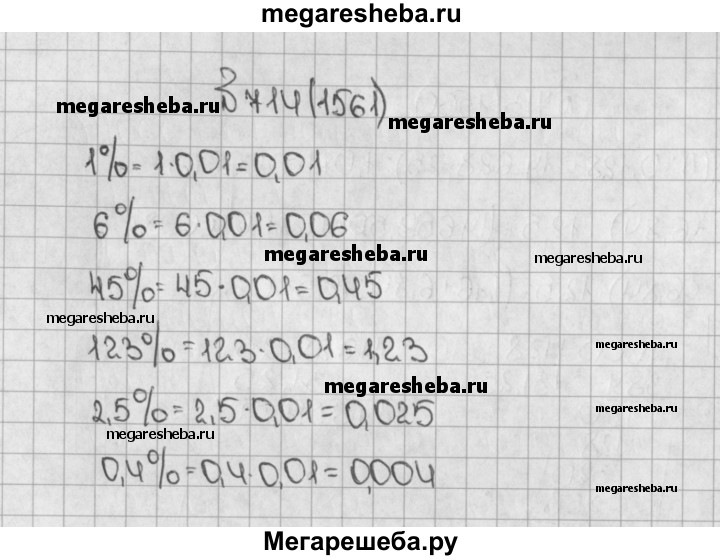 megaresheba.ru
З 714 (1561)
megaresheba.ru
megaresheba.ru
1% = 1·0,01 = 0,01
6% = 6·0,01 = 0,06
megaresheba.ru
megaresheba.ru
45% = 45·0,01 = 0,45
megaresheba.ru
megaresheba.ru
123% = 123·0,01 = 1,23
megaresheba.ru
megaresheba.ru
2,5% = 2,5·0,01 = 0,025
megaresheba.ru
megaresheba.ru
0,4% = 0,4·0,01 = 0,004
megaresheba.ru
Мегарешеба.ру